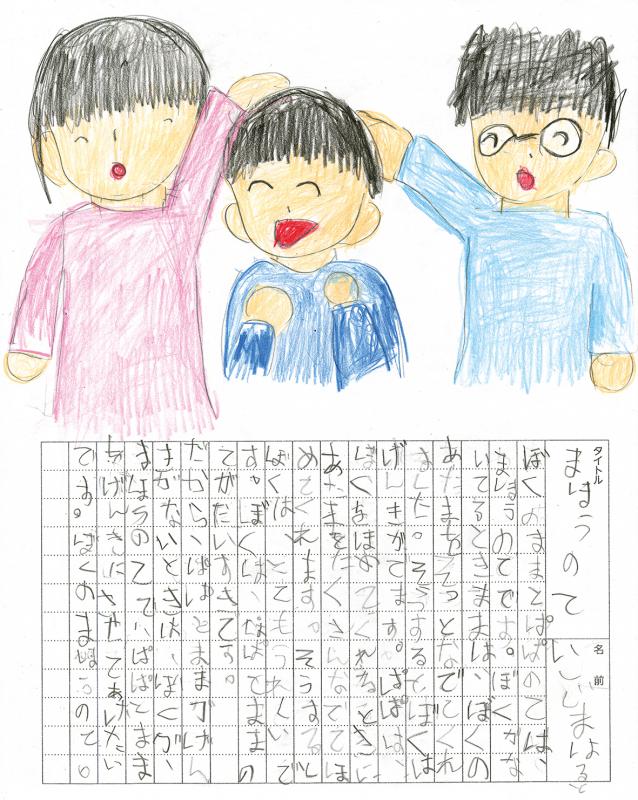 タイトル
まほうのて
名前
ぼくのままとぱぱのては、
まほうのてです。ぼくがな
いてるときままは、ぼくの
あたまをそっとなでてくれ
ました。そうするとぼくは
げんきがでます。ぱぱは、
ぼくをほめてくれるときに
あたまをたくさんなでてほ
めてくれます。そうすると
ぼくは、とてもうれしいで
す。ぼくは、ぱぱとままの
てがだいすきです。
だから、ぱぱとままがげん
きがないときは、ぼくが、
まほうのてで、ぱぱとまま
をげんきにさせてあげたい
です。ぼくのまほうのて。